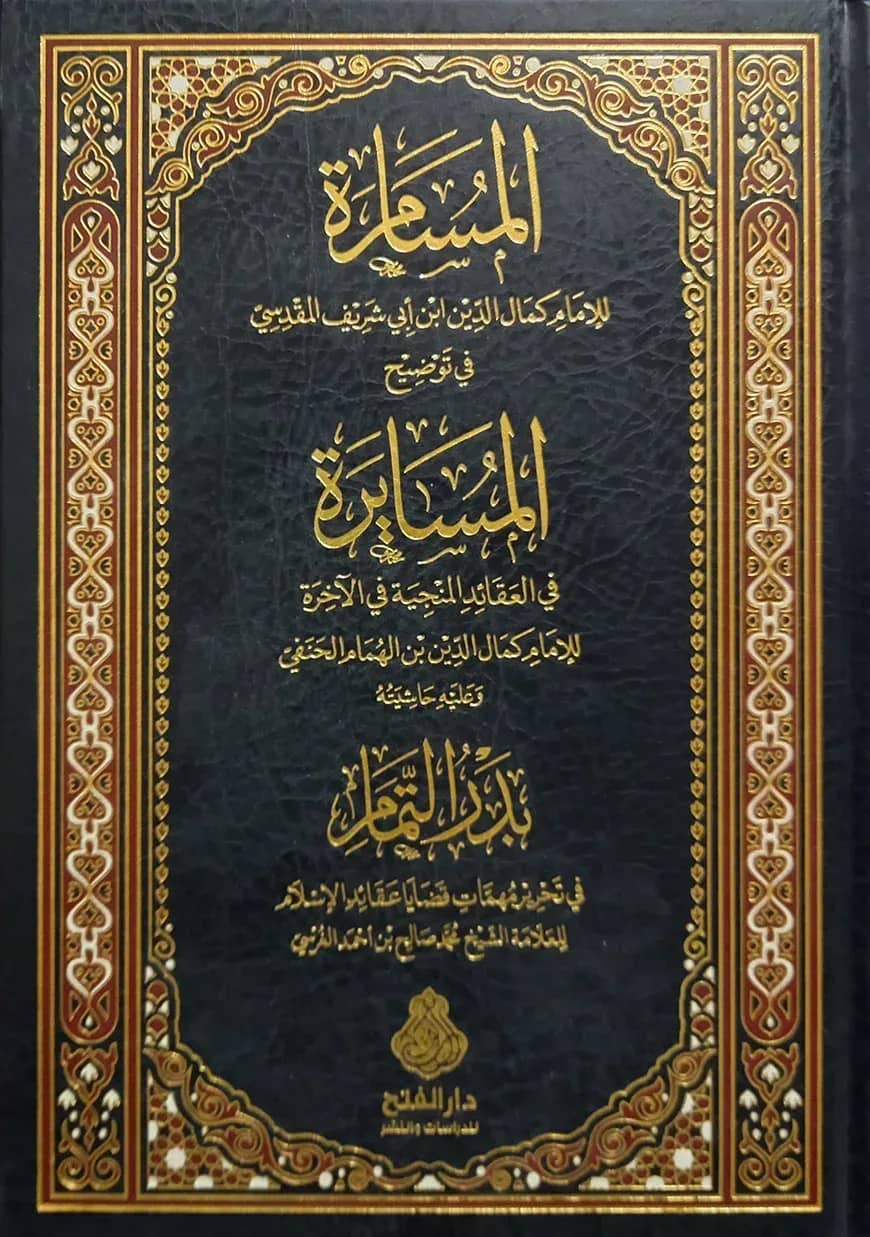 المُسَامَرَة
للإمَامِ كمَال الدِّيْن ابْن أبي شَرِيْف المَقْدِسِيّ
في تَوْضِيْح
المُسَايَرَة
في العَقَائِدِ المُنْجِيَة في الآخِرَة
للإمَامِ كمَال الدِّيْن بْن الهُمَام الحَنَفيّ
وَعَلَيْهِ حَاشِيَتُهُ
بَدْرُ التَّمَامِ
في تَحْرِيْرِ مُهِمَّاتِ قَضَايَا عَقَائِدِ الإسْلَام
للعَلَّامَة الشَّيْخ مُحَمَّد صَالِح بْن أحْمَد الغُرْسِي
دار الفتح
للدراسات والنشر